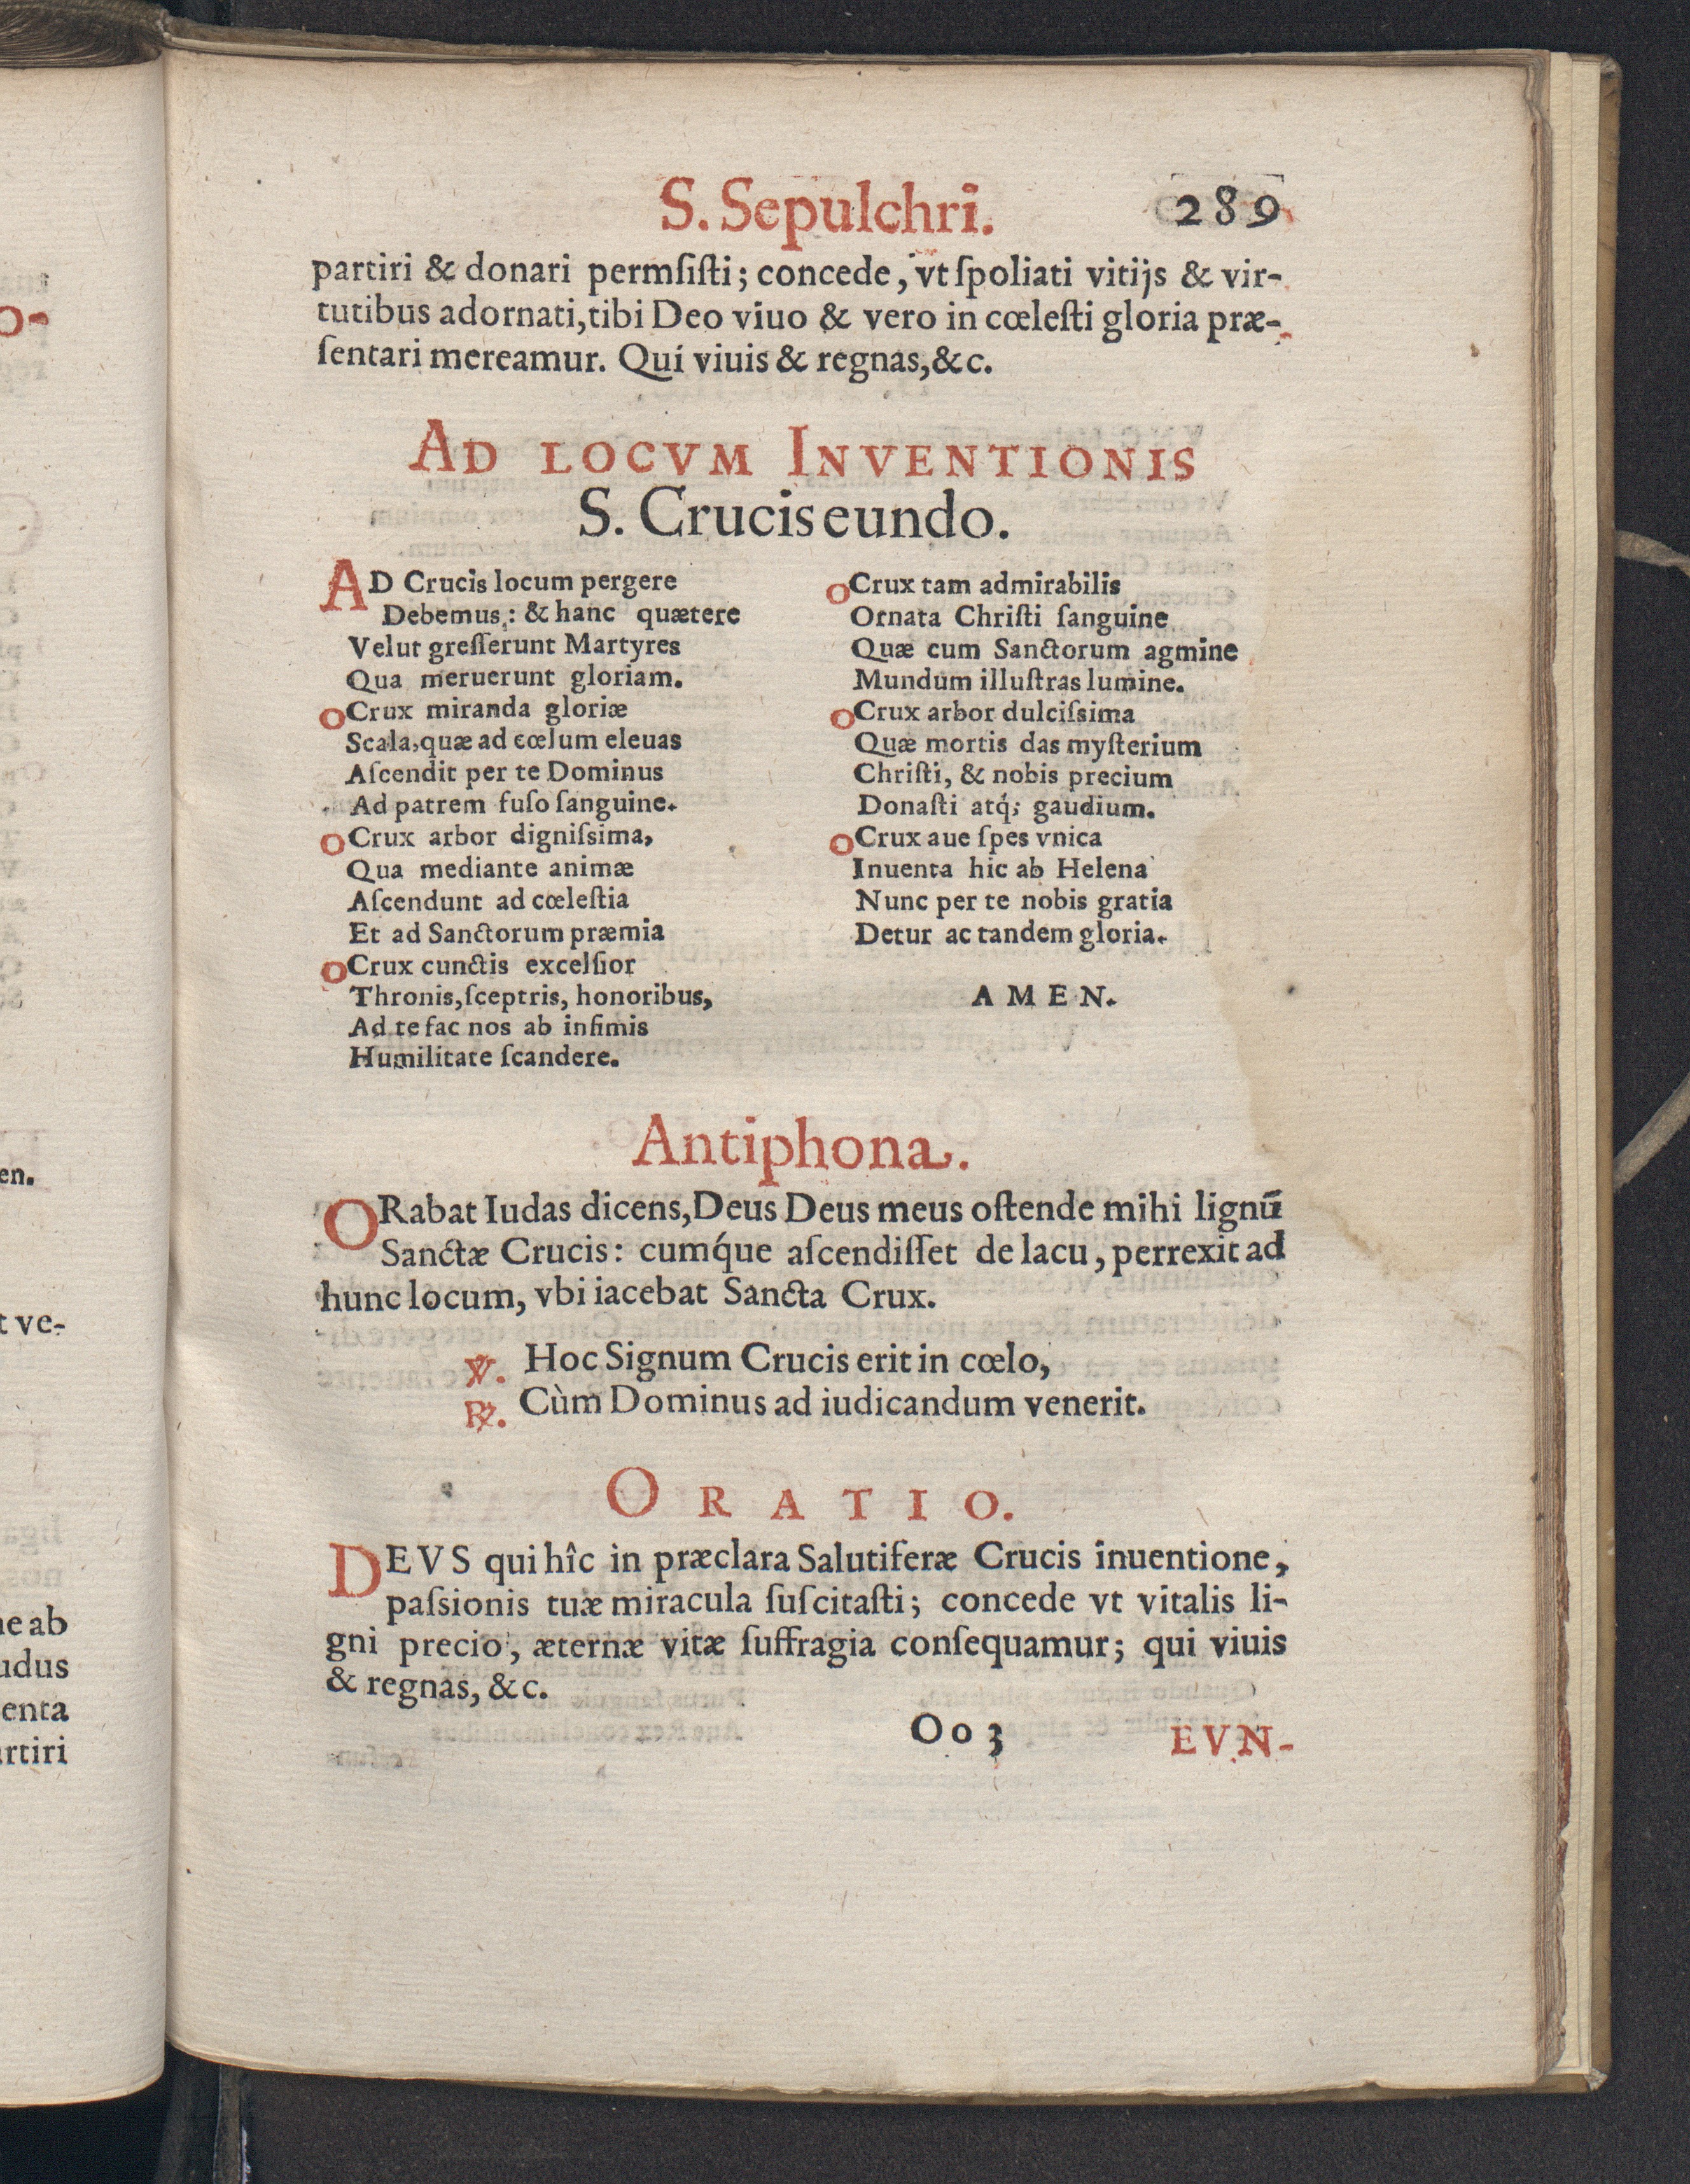 S. Sepulchri.
289
partiri & donari permſiſti; concede, vt ſpoliati vitijs & vir-
tutibus adornati, tibi Deo viuo & vero in cœleſti gloria præ-
ſentari mereamur. Qui viuis & regnas, &c.
AD LOCVM INVENTIONIS
S. Crucis eundo.
AD Crucis locum pergere
Debemus,: & hanc quætere
Velut greſſerunt Martyres
Qua meruerunt gloriam.
O Crux miranda gloriæ
Scala, quæ ad cœlum eleuas
Aſcendit per te Dominus
Ad patrem fuſo ſanguine.
O Crux arbor digniſsima,
Qua mediante animæ
Aſcendunt ad cœleſtia
Et ad Sanctorum præmia
O Crux cunctis excelſior
Thronis, ſceptris, honoribus,
Ad te fac nos ab infimis
Humilitate ſcandere.
O Crux tam admirabilis
Ornata Chriſti ſanguine
Quæ cum Sanctorum agmine
Mundum illuſtras lumine.
O Crux arbor dulciſsima
Quæ mortis das myſterium
Chriſti, & nobis precium
Donaſti atq́; gaudium.
O Crux aue ſpes vnica
Inuenta hic ab Helena
Nunc per te nobis gratia
Detur ac tandem gloria.
AMEN.
Antiphona.
ORabat Iudas dicens, Deus Deus meus oſtende mihi lignū
Sanctæ Crucis: cumq́ue aſcendiſſet de lacu, perrexit ad
hunc locum, vbi iacebat Sancta Crux.
℣. Hoc Signum Crucis erit in cœlo,
℟. Cùm Dominus ad iudicandum venerit.
ORATIO.
DEVS qui hîc in præclara Salutiferæ Crucis inuentione,
paſsionis tuæ miracula ſuſcitaſti; concede vt vitalis li-
gni precio, æternæ vitæ ſuffragia conſequamur; qui viuis
& regnas, &c.
Oo 3
EVN-